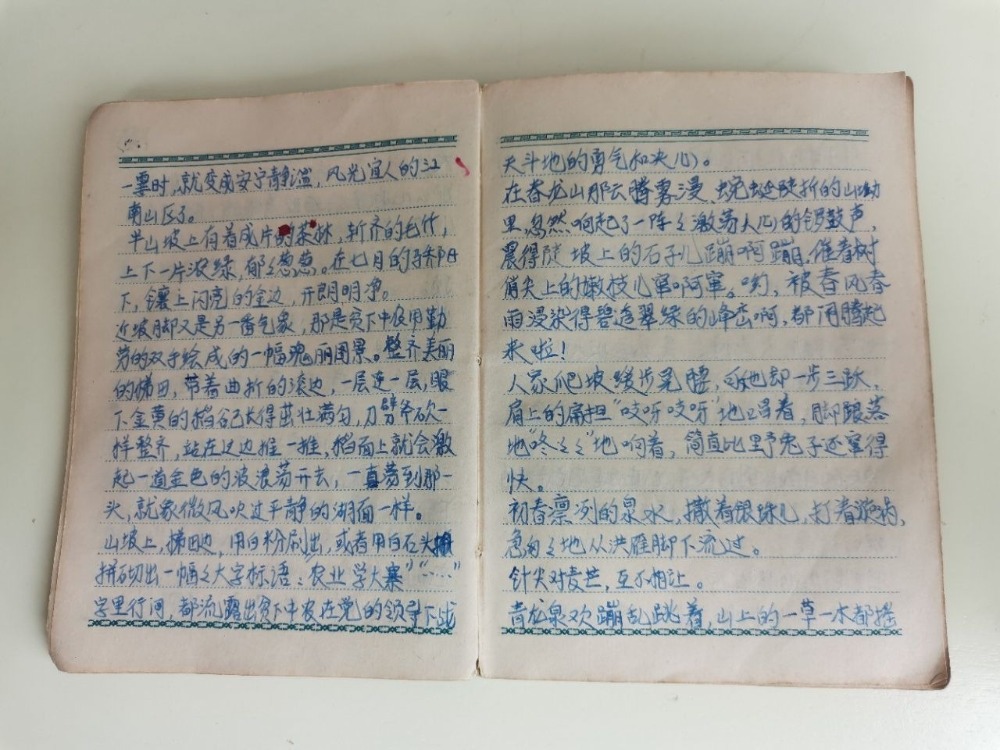 一霎时，就变成安宁静谧，风光宜人的江
南山区了。
半山坡上有着成片的茶林，新齐的毛竹，
上下一片浓绿，郁々葱葱。在七月的骄阳
下，镶上闪亮的金边，开朗明净。
近坡脚又是另一番气象，那是贫下中农用勤
劳的双手绘成的一幅瑰丽图景。整齐美丽
的梯田，带着曲折的滚边，一层连一层，眼
下金黄的稻谷已长得茁壮满匀，刀劈斧砍一
样整齐，站在这边推一推，稻面上就会激
起一道金色的波浪荡开去，一直荡到那一
头，就象微风吹过平静的湖面一样。
山坡上，梯田边，用白粉刷出，或者用白石头
拼砌出一幅々大字标语：农业学大寨”“……”
字里行间，都流露出贫下中农在党的领导下战
天斗地的勇气和决心。
在春龙山那云腾雾漫、蜿蜒陡折的山坳
里，忽然响起了一阵々激荡人心的锣鼓声，
震得陡坡上的石子儿蹦啊蹦，催着树
梢尖上的嫩枝儿窜啊窜。哟，被春风春
雨浸染得碧造翠绿的峰峦啊，都闹腾起
来啦！
人家爬坡缓步弯腰，他却一步三跃，
肩上的扁担“吱呀吱呀”地唱着，脚踉落
地“咚々々”地响着，简直比野兔子还窜得
快。
初春凛冽的泉水，撒着银珠儿，打着漩涡，
急匆々地从洪雁脚下流过。
针尖对麦芒，互不相让。
青龙泉欢蹦乱跳着，山上的一草一木都摇